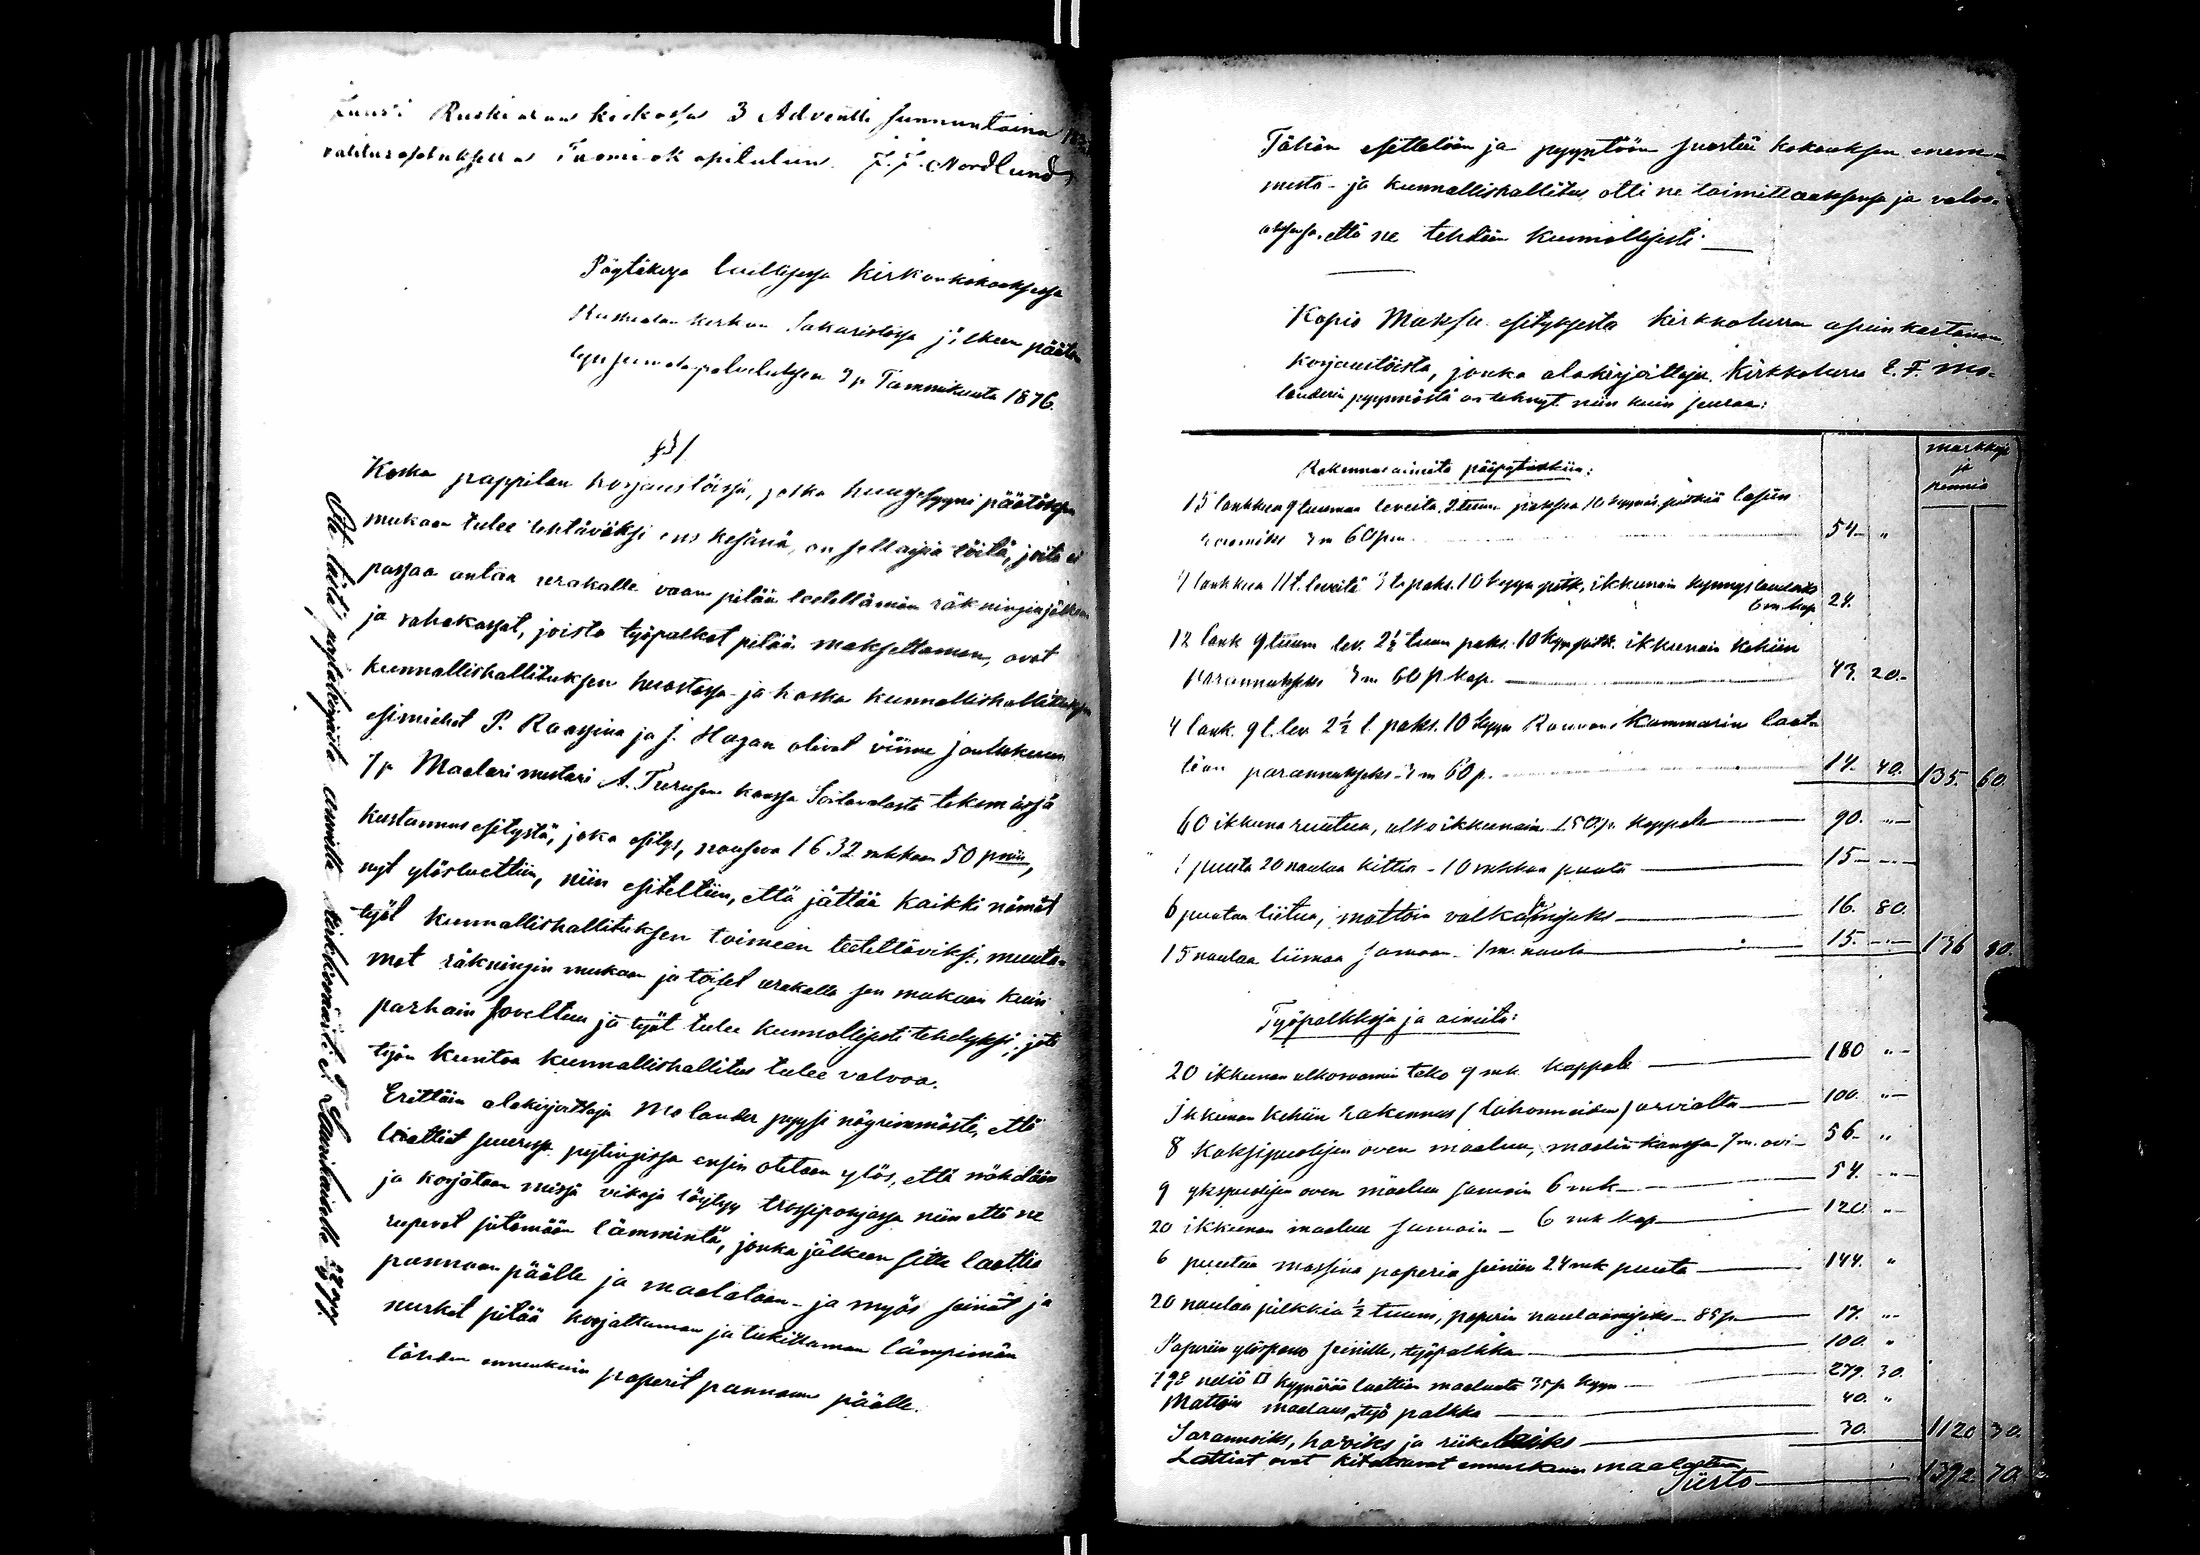 Luuš: Ruskialan kirkossa 3 Adventti sunnuntaina
valitusosotuksella Tuomiok apitulin. J. J. Nordlund
Pöytäkirja laillisessa Kirkonkokouksessa
Ruskealan kirkon Sakaristossa jälkeen päätetyn
Jumalanpalveluksen 9 p Tammikuuta 1876.
§ 1
Koska pappilan korjaustöissä, jotka huugesyyni päätöksen
mukaan tulee tehtäväksi ens kesänä, on sellaisia töitä, joita ei
passaa antaa urakalle vaan pitää teetettämän räkningin jälkeen
ja rahakassat, joista työpalkat pitää maksettaman, ovat
kunnallishallituksen huostassa ja koska kunnallishallituksen
esimiehet P. Raassina ja J. Hagan olivat viime joulukuun
7 p Maalarimestari A. Turusen kanssa Soitavalasta tekemässä
kustannus esitystä, joka esitys, nouseva 1632 mkkaan 50 pniin,
nyt ylösluettiin, niin esiteltiin, että jättää kaikki nämät
työt kunnallishallituksen toimeen teetettäviksi, muuta-
mat räkningin mukaan ja toiset urakalla sen mukaan kuin
parhain soveltuu ja työt tulee kunnollisesti tehdyksi, jota
työn kuntoa kunnallishallitus tulee valvoa.
Erittäin alakirjoittaja Molander pyysi nöyrimmästi, että
laattiat suuressa pytingissä ensin otetaan ylös, että nähdään
ja korjataan missä vikoja löytyy trossipohjassa niin että ne
rupevat pitämään lämmintä, jonka jälkeen sitte laattia
pannaan päälle ja maalataan - ja myös seinät ja
nurkat pitää korjattaman ja tukittaman lämpimän
tähden ennenkuin paperit pannaan päälle.
Ote tästä pöytäkirjasta annettu kirkkoväärti
Tähän esittelöön ja pyyntöön suostui kokouksen enem-
mistö - ja kunnallishallitus otti ne toimittaaksensa ja valvo-
aksensa, että ne tehdään kunnollisesti
Kopio Maksu esityksestä kirkkoherran asuinkartanon
korjaustöistä, jonka alakirjoittaja Kirkkoherra E. F. Mo-
landerin pyynnöstä on tehnyt niin kuin seuraa:
markkoja
ja
penniä
Rakennusaineita pääpytinkiin:
15 lankkua 9 tuumaa leveitä, 3 tuum paksua 10 kyynär. pitkiä lasin
raamiks 3 m 60 pn 54 "
4 lankkua 11 t. leveitä 3 t. paks. 10 kyyn pitk, ikkunain kynnyslaudaks
6 m. kap 24.
12 lank 9 tuum lev. 2½ tuum paks. 10 kyyn pitk. ikkunain kehiin
parannukseks 3 m 60 p kap. 43. 20.
4 lank. 9 t. lev 2½ t. paks. 10 kyyn Rouvan Kammarin laat-
tian parannukseks 3 m 60 p. 14. 40. 135. 60.
60 ikkuna ruutua, ulko ikkunain 1.50 p. kappale 90. "
1 puuta 20 naulaa kittiä - 10 mkkaa puuta 15
6 puutaa liitua, mattoin valkasuseks 16. 80.
15 naulaa liimaa samaan 1 m. naula 15. 136 80.
Työpalkkoja ja aineita:
20 ikkunan ulkoraamin teko 9 mk. kappale 180 "
Ikkunan kehiin rakennus (lahonneiden) arviolta 100. "
8 kaksipuolisen oven maaluu, maalin kanssa 7 m. ovi 56 "
9 ykspuolisen oven maaluu samoin 6 mk 54. "
20 ikkunan maaluu samoin - 6 mk kap 120 "
6 puutaa massina paperia seiniin 24 mk puuta 144. "
20 naulaa pilkkiä ½ tuum, paperin naulaamiseks - 85 p 17. "
Paperiin ylöspano seinille, työpalkka 100. "
798 neliö □ kyynärää laattian maaluuta 35 p kyyn 279. 30.
Mattoin maalaus, työ palkka 40. "
Saranoiks, haoiks ja riikeleiks 30. 1120 30.
Lattiat ovat kitattavat ennenkuin maalataan
Siirto 1392. 70.